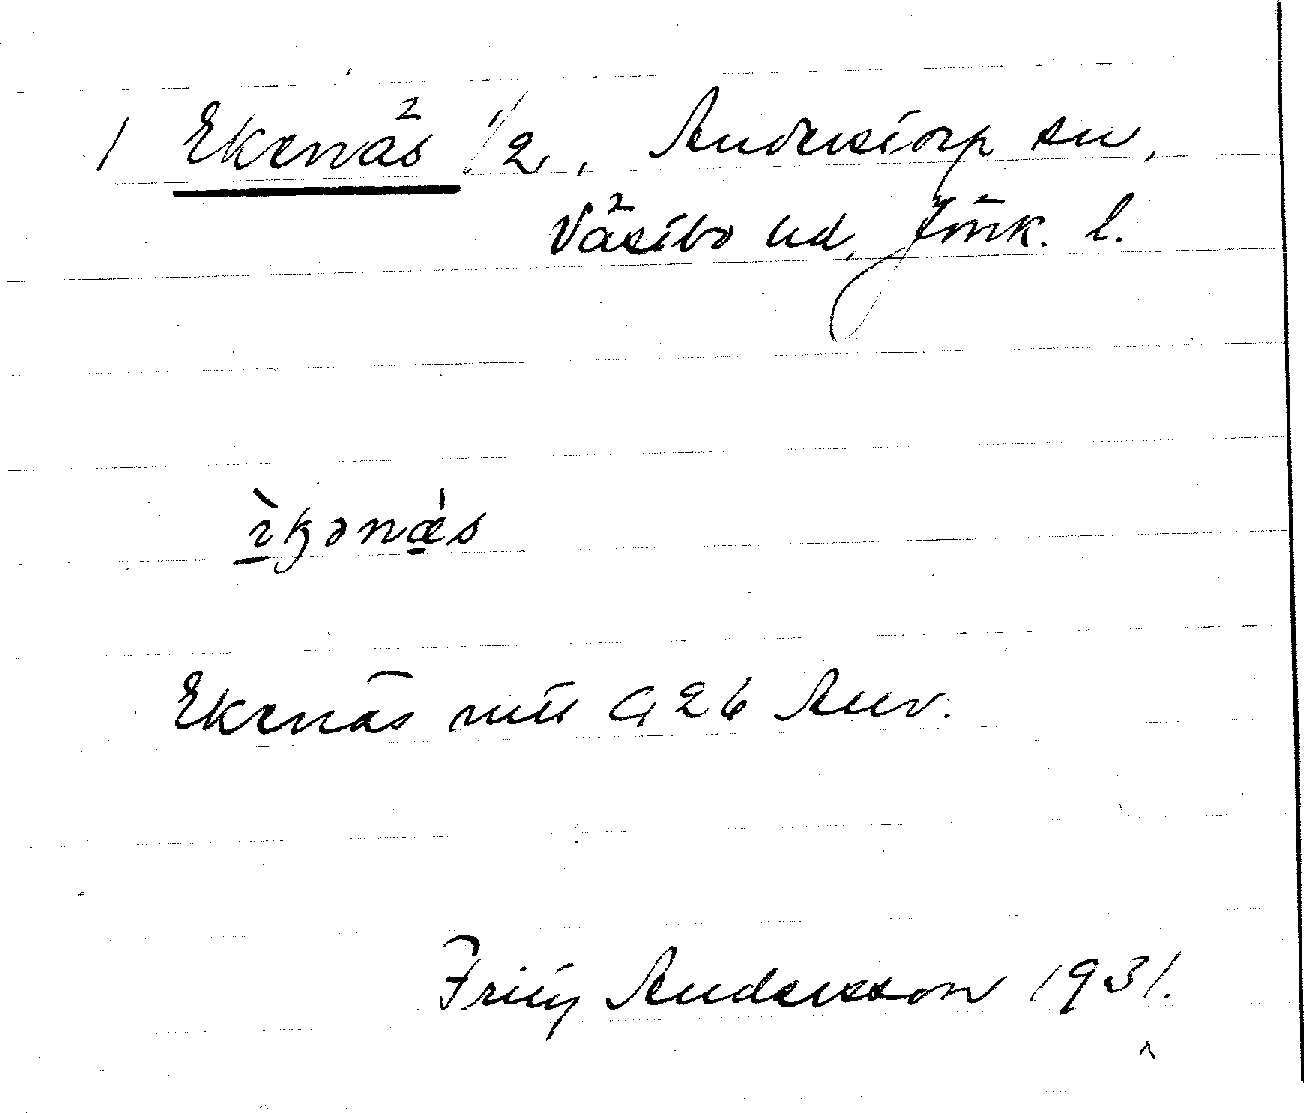 1 Ekenäs 1/2, Anderstorp sn,
Västbo hd, Jönk. l.
ìkənǽs
Ekenäs mtl G 26 Anv.
Fritz Andersson 1931.